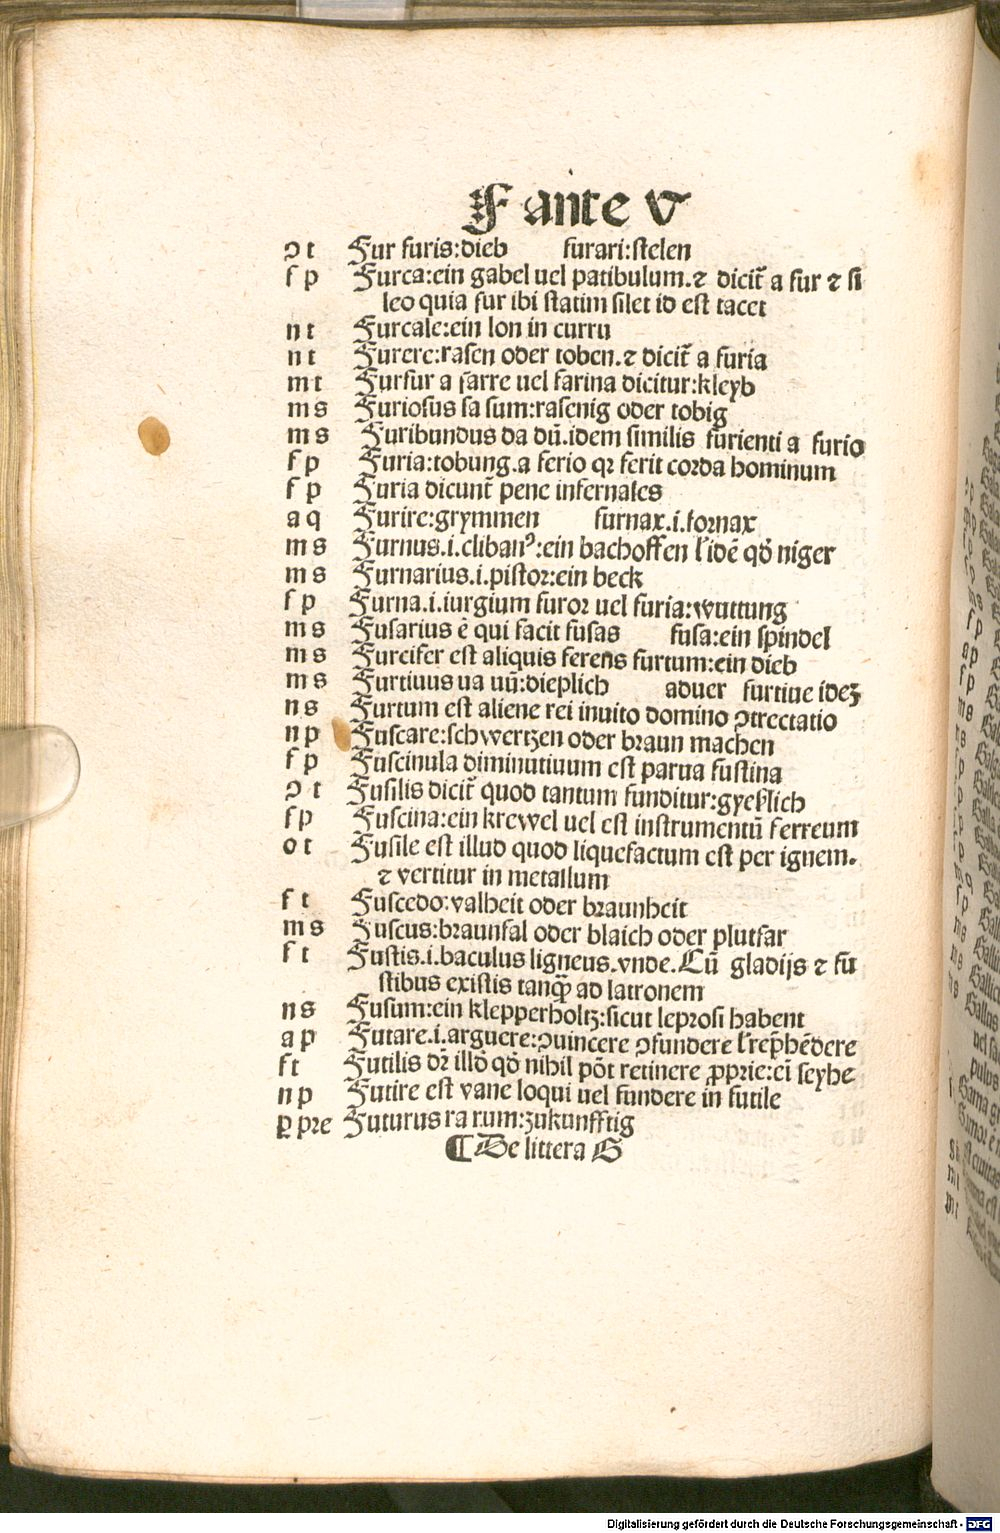 F ante v
ↄ t Fur furis:dieb furari:stelen
f p Furca:ein gabel uel patibulum.⁊ dicit̃ a fur ⁊ si
leo quia fur ibi statim silet id est tacet
n t Furcale:ein lon in curru
n t Furere:rasen oder toben.⁊ dicit̃ a furia
m t Furfur a farre uel farina dicitur:kleyb
m s Furiosus sa sum:rasenig oder tobig
m s Furibundus da dū.idem similis furienti a furio
f p Furia:tobung.a ferio qꝛ ferit corda hominum
f p Furia dicunt̃ pene infernales
a q Furire:grymmen furnax.i.fornax
m s Furnus.i.clibanꝰ:ein bachoffen ł idē qď niger
m s Furnarius.i.pistor:ein beck
f p Furna.i.iurgium furor uel furia:wuttung
m s Fusarius ē qui facit fusas fusa:ein spindel
m s Furcifer est aliquis ferens furtum:ein dieb
m s Furtiuus ua uū:dieplich aduer furtiue ideꝫ
n s Furtum est aliene rei inuito domino ↄtrectatio
n p Fuscare:schwertzen oder braun machen
f p Fuscinula diminutiuum est parua fustina
ↄ t Fusilis dicit̃ quod tantum funditur:gyeßlich
f p Fuscina:ein krewel uel est instrumentū ferreum
o t Fusile est illud quod liquefactum est per ignem.
⁊ vertitur in metallum
f t Fuscedo:valheit oder braunheit
m s Fuscus:braunfal oder blaich oder plutfar
f t Fustis.i.baculus ligneus.vnde.Cū gladijs ⁊ fu
stibus existis tanꝙ̃ ad latronem
n s Fusum:ein klepperholtz:sicut leprosi habent
a p Futare.i.arguere:ↄuincere ↄfundere ł rep̃hēdere
f t Futilis dr̃ illď qď nihil pōt retinere ꝓprie:eī seyhe
n p Futire est vane loqui uel fundere in futile
ꝑ pre Futurus ra rum:zukunfftig
¶ De littera G
Digitalisierung gefördert durch die Deutsche Forschungsgemeinschaft - DFG